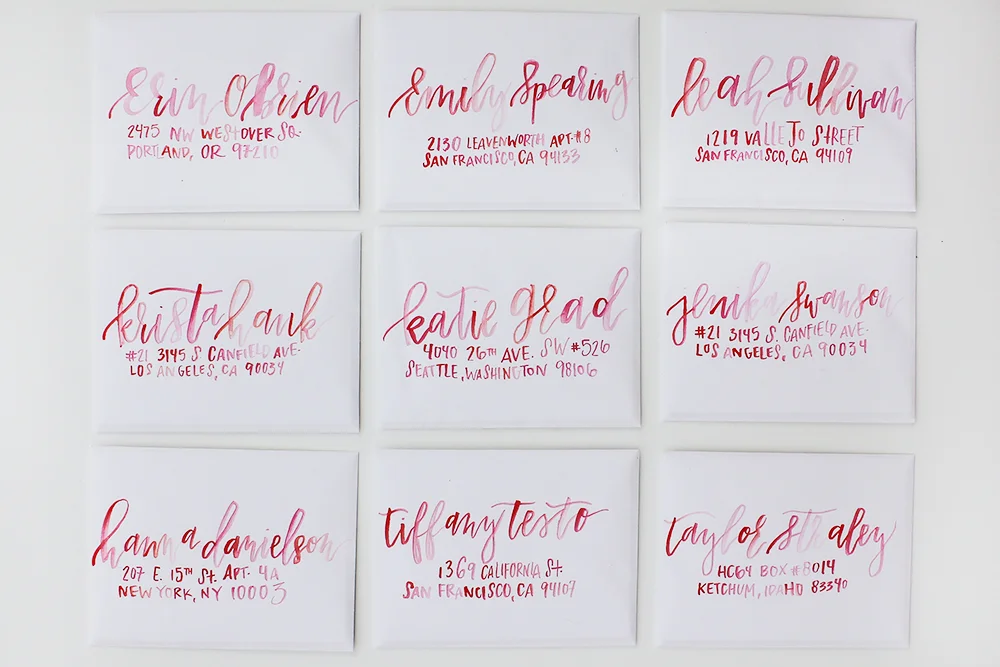 Erin O'Brien
2475 NW WESTOVER SQ.
PORTLAND, OR 97210
Emily Spearing
2130 LEAVENWORTH APT. #8
SAN FRANCISCO, CA 94133
leah Sullivan
1219 VALLEJO STREET
SAN FRANCISCO, CA 94109
krista hauk
#21 3145 S. CANFIELD AVE.
LOS ANGELES, CA 90034
katie grad
4040 26TH AVE. SW #526
SEATTLE, WASHINGTON 98106
jenika Swanson
#21 3145 S. CANFIELD AVE.
LOS ANGELES, CA 90034
hanna danielson
207 E. 15TH St. APT. 4A
NEW YORK, NY 10003
tiffany testo
1369 CALIFORNIA St.
SAN FRANCISCO, CA 94107
taylor straley
HC64 BOX #8014
KETCHUM, IDAHO 83340